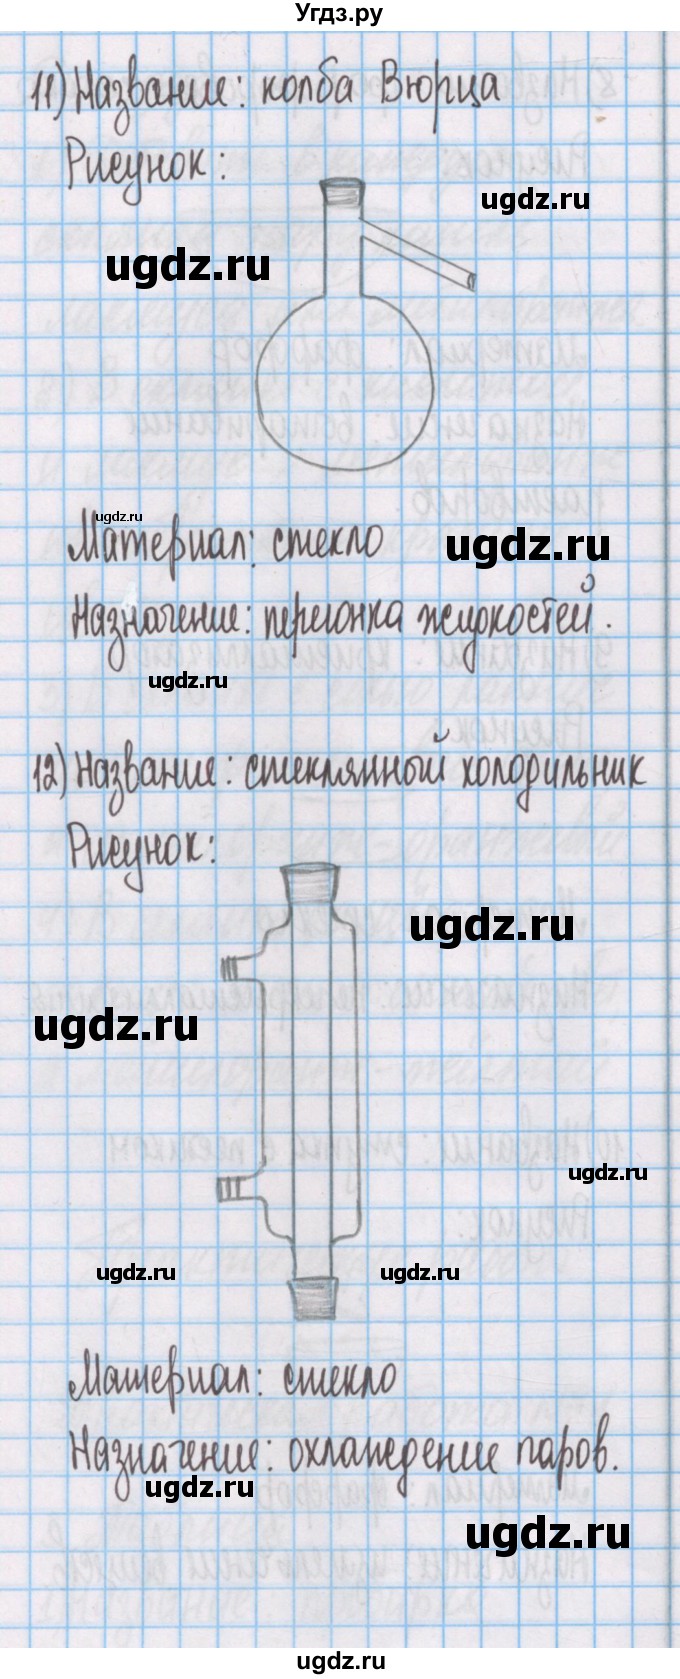 Угдз.ру
11) Название: колба Вюрца
Рисунок:
ugdz.ru
ugdz.ru
ugdz.ru
Материал: стекло
ugdz.ru
Назначение: перегонка жидкостей.
ugdz.ru
12) Название: стеклянный холодильник
Рисунок:
ugdz.ru
ugdz.ru
ugdz.ru
ugdz.ru
ugdz.ru
Материал: стекло
Назначение: охлаждение паров.
ugdz.ru
ugdz.ru
ugdz.ru